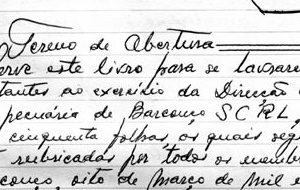 Termo de Abertura
erve este livro para se lavrarem
tantes ao exercício da Direcção
pecuária de Barcouço S C R L,
cinquenta folhas os quais segu
rubricados por todos os membr
couço, oito de março de mil